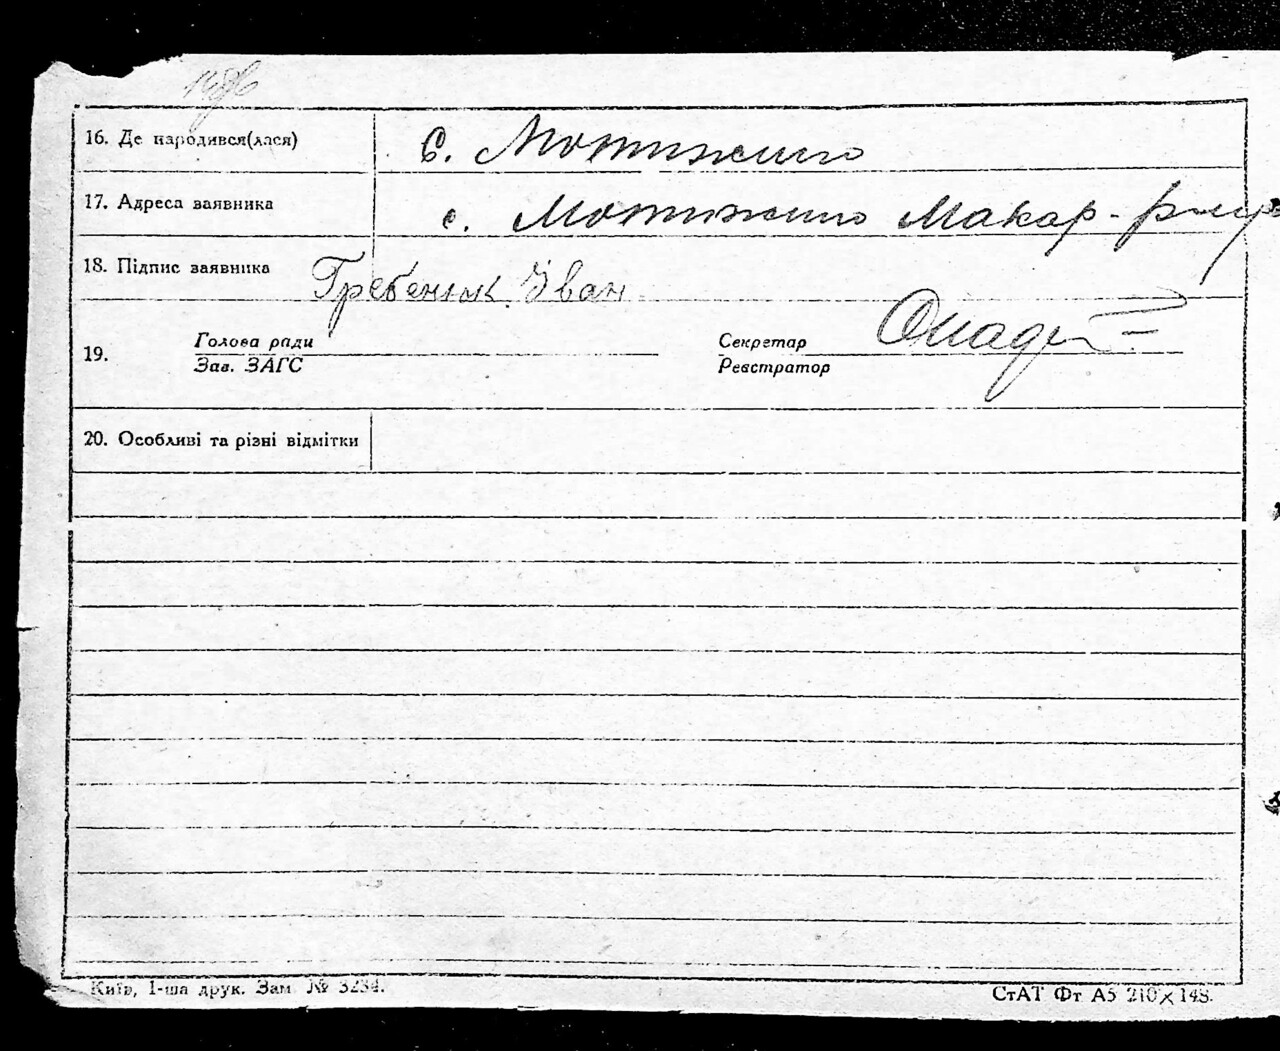 16. Де народився(лася) с. Мотижино
17. Адреса заявника с. Мотижино Макар-
18. Підпис заявника Гребенюк Іван
Голова ради Секретар
19.
Зав. ЗАГС Реєстратор
20. Особливі та різні відмітки
Київ, 1-ша друк. Зам. № 3234. СтАТ Фт А5 210×148.